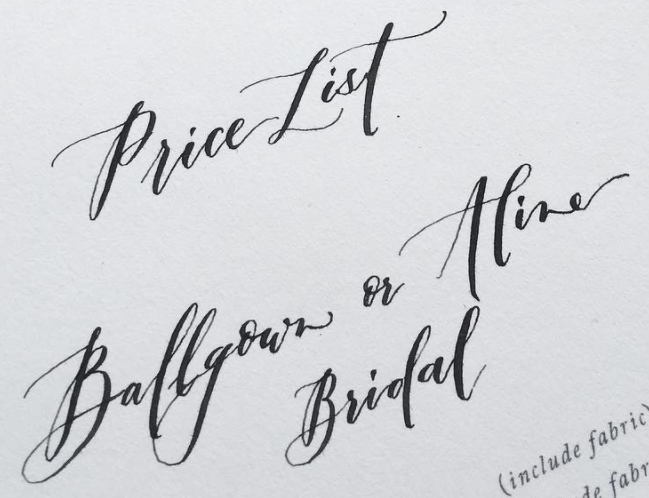 Price List
Ballgown or Aline
Bridal
(include fabric)
de fabr